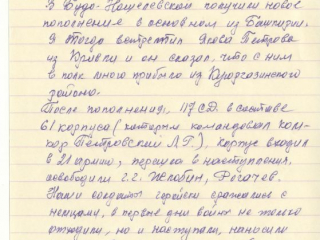 В Буда-Кошелевском получили новое
пополнение в основном из Башкирии.
Я тогда встретил Якова Петрова
из и он сказал, что с ним
в полк много прибыло из Куюргазинского
района.
После пополнения, 117 СД в составе
61 корпуса (которым командовал ком-
кор Петровский Л.Г.), корпус входил
в 21 армию, перешла в наступления,
освободили г.г. Жлобин, Рогачев.
Наши солдаты геройски сражались с
немцами, в первые дни войны не только
отходили, но и наступали, наносили